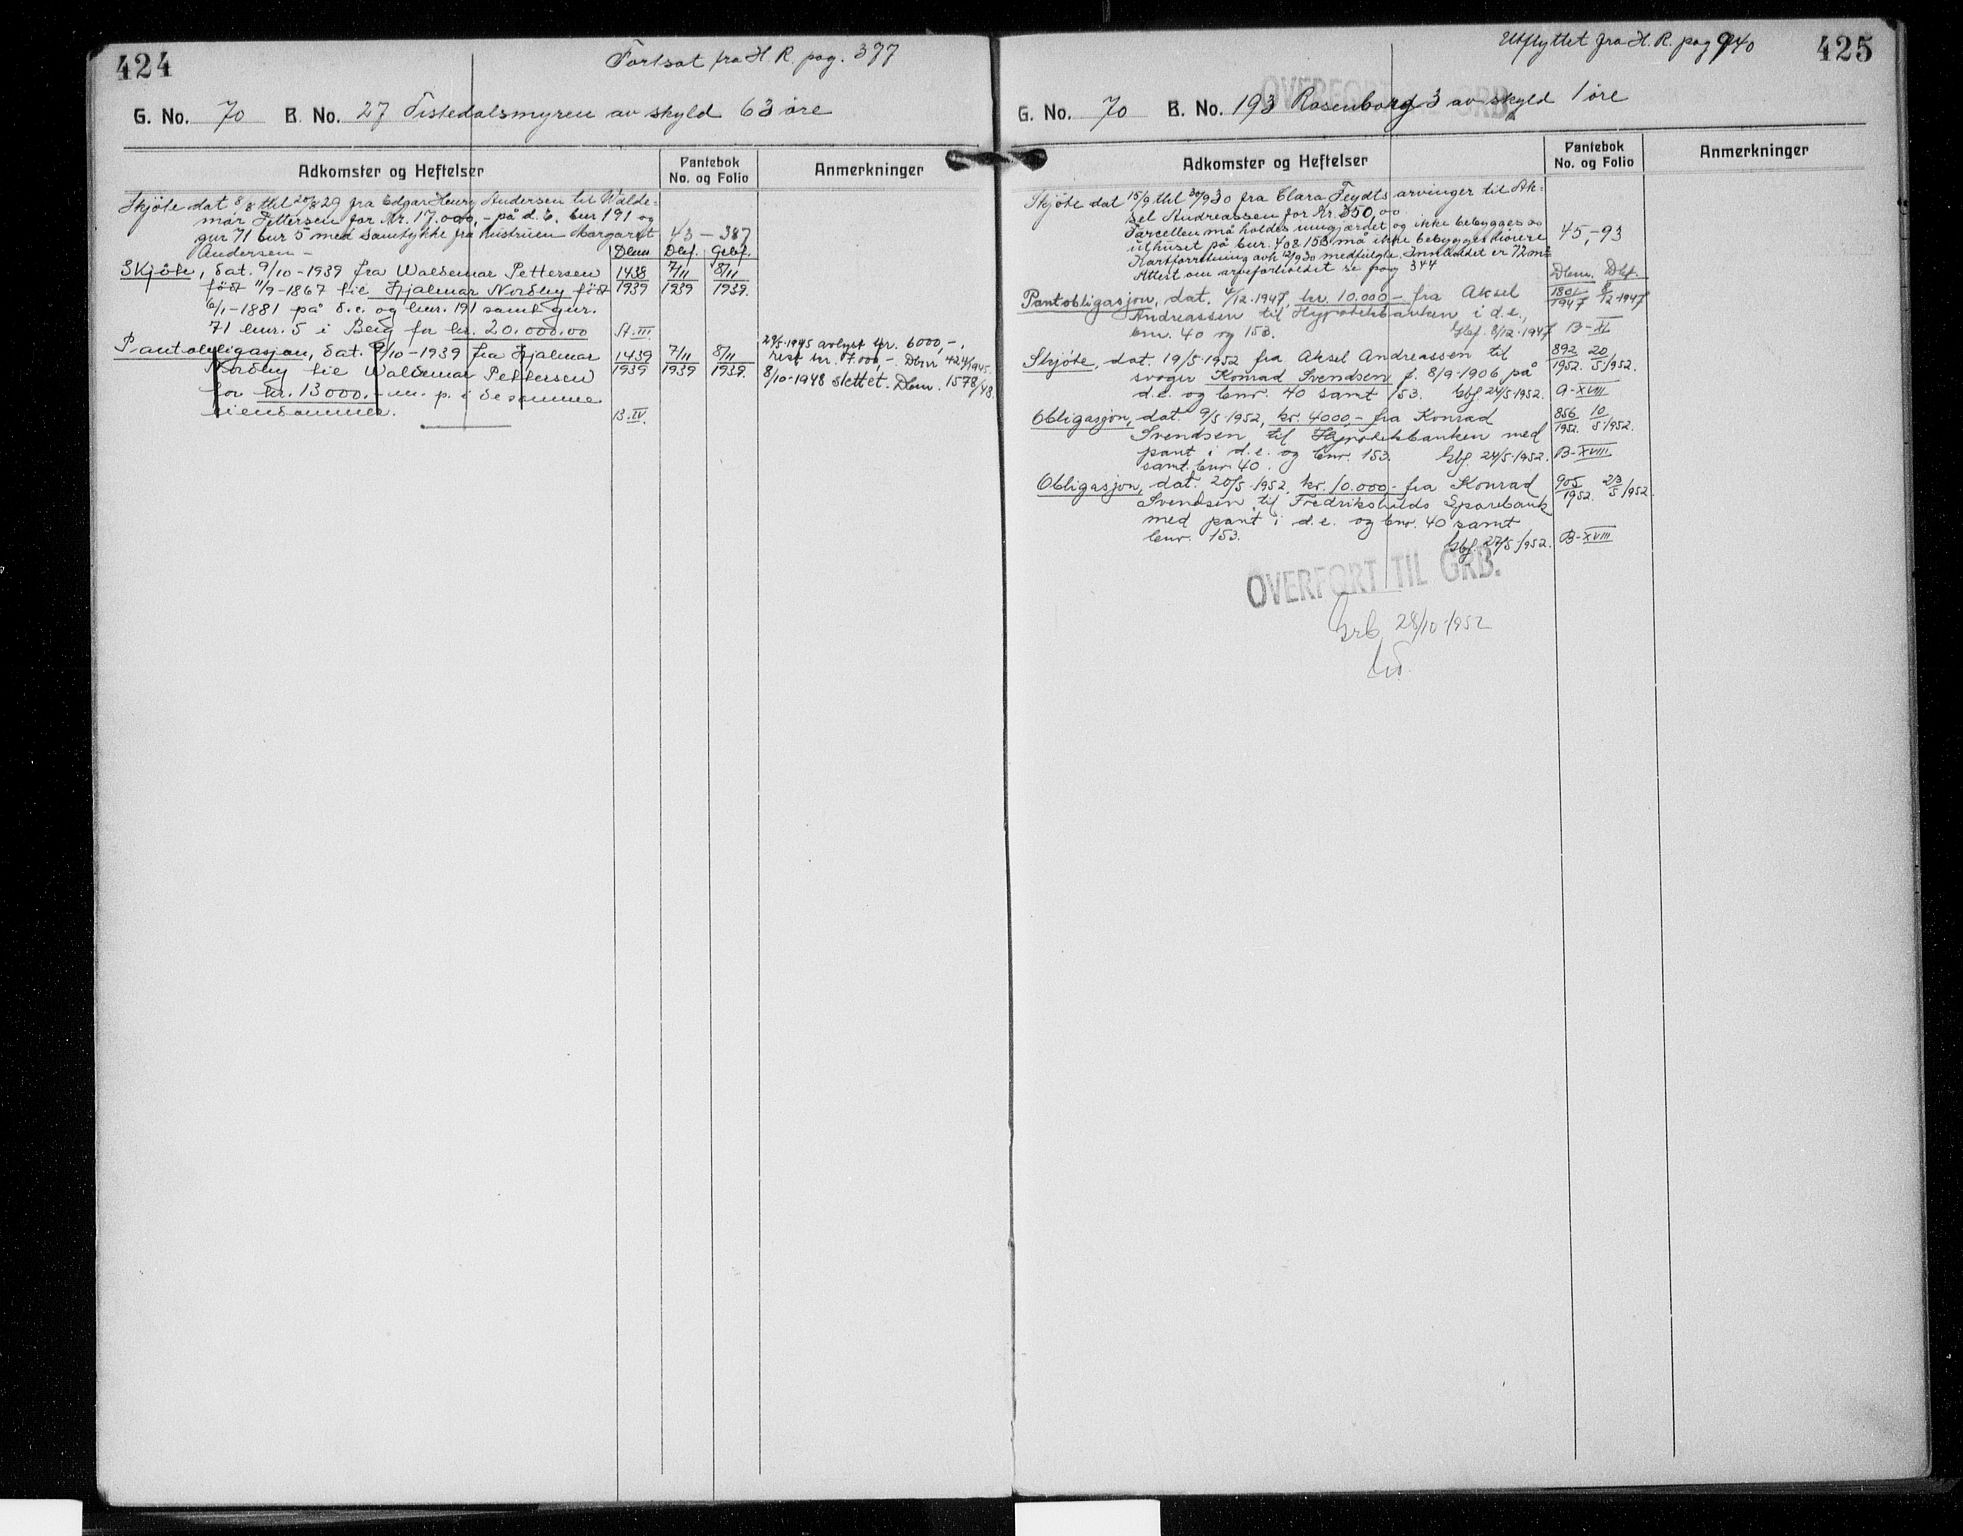 424
Fortsat fra H. R. pag. 377
G. No. 70 B. No. 27 Tistedalsmyren av skyld 63 øre
Adkomster og Heftelser
Pantebok No. og Folio
Anmerkninger
Skjøte dat 8/8 thl 20/8 29 fra Edgar Henry Andersen til Walde-
mar Pettersen for Kr. 17.000,- på d. e. bnr 191 og
gnr 71 bnr 5 med samtykke fra hustruen Margaret 43 – 387
Andersen – Dbnr. Dbf. Gebf.
Skjøte, dat. 9/10-1939 fra Waldemar Pettersen 1438 7/11 8/11
født 11/9-1867 til Hjalmar Nordby født 1939 1939 1939.
6/1-1881 på d.e. og bnr. 191 samt gnr.
71 bnr. 5 i Berg for kr. 20.000.00 A. III.
Pantobligasjon, dat. 9/10-1939 fra Hjalmar 1439 7/11 8/11
Nordby til Waldemar Pettersen 1939 1939 1939.
for kr. 13000.- m. p. i de samme
eiendommer. B. IV.
29/5-1945 avlyst kr. 6000,-.
rest kr. 7.000,-. Dbnr 424/1945.
8/10-1948 slettet. Dbnr. 1578/48.
Utflyttet fra H. R. pag 940
425
OVERFØRT TIL GRB.
G. No. 70 B. No. 193 Rosenborg 3 av skyld 1 øre
Adkomster og Heftelser
Pantebok No. og Folio
Anmerkninger
Skjøte dat 15/9 thl 30/9 30 fra Clara Feydts arvinger til Ak-
sel Andreassen for Kr. 350,00
Parcellen må holdes inngjærdet og ikke bebygges og
uthuset på bnr. 40 & 153 må ikke bebygges høiere 45,-93
Kartforretning avh 12/9 30 medfulgte. Innholdet er 72 m2
Attest om arveforholdet se pag 344 Dbnr. Dbf.
Pantobligasjon, dat. 4/12-1947, kr. 10.000- fra Aksel 1801/1947 8/12-1947
Andreassen til Hypotekbanken i d.e.,
bnr. 40 og 153. Gbf. 8/12-1947 B-XI
Skjøte, dat. 19/5-1952 fra Aksel Andreassen til 892/1952. 20/5 1952.
svoger Konrad Svendsen f. 8/9-1906 på
d.e. og bnr. 40 samt 153. Gbf. 24/5-1952. A-XVIII
Obligasjon, dat. 9/5-1952, kr. 4000,- fra Konrad 856/1952. 10/5 1952.
Svendsen til Hypotekbanken med
pant i d.e. og bnr. 153. Gbf. 24/5-1952. B-XVIII
samt bnr 40.
Obligasjon, dat. 20/5-1952, kr. 10.000,- fra Konrad 905/1952. 23/5 1952.
Svendsen til Fredrikshalds Sparebank
med pant i d.e. og bnr. 40 samt
bnr. 153. Gbf. 27/5-1952. B-XVIII
OVERFØRT TIL GRB.
Grb 28/10-1952